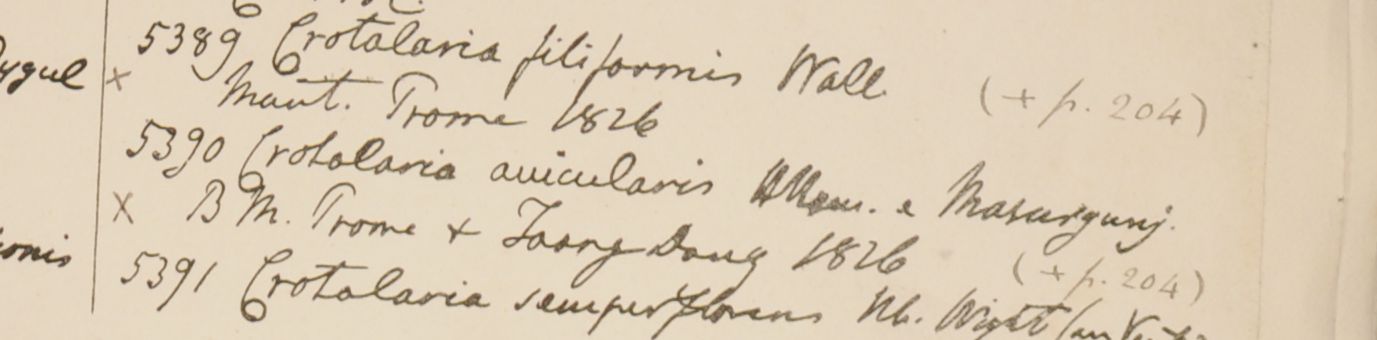 5389 Crotalaria filiformis Wall.
ygul
x Mont. Trome 1826 (+ p. 204)
5390 Crotalaria auicularis Ham. e Masurgunj.
x B M. Trome + Taong Dong 1826
onis (+ p. 204)
5391 Crotalaria semperflorens Hb. Wight